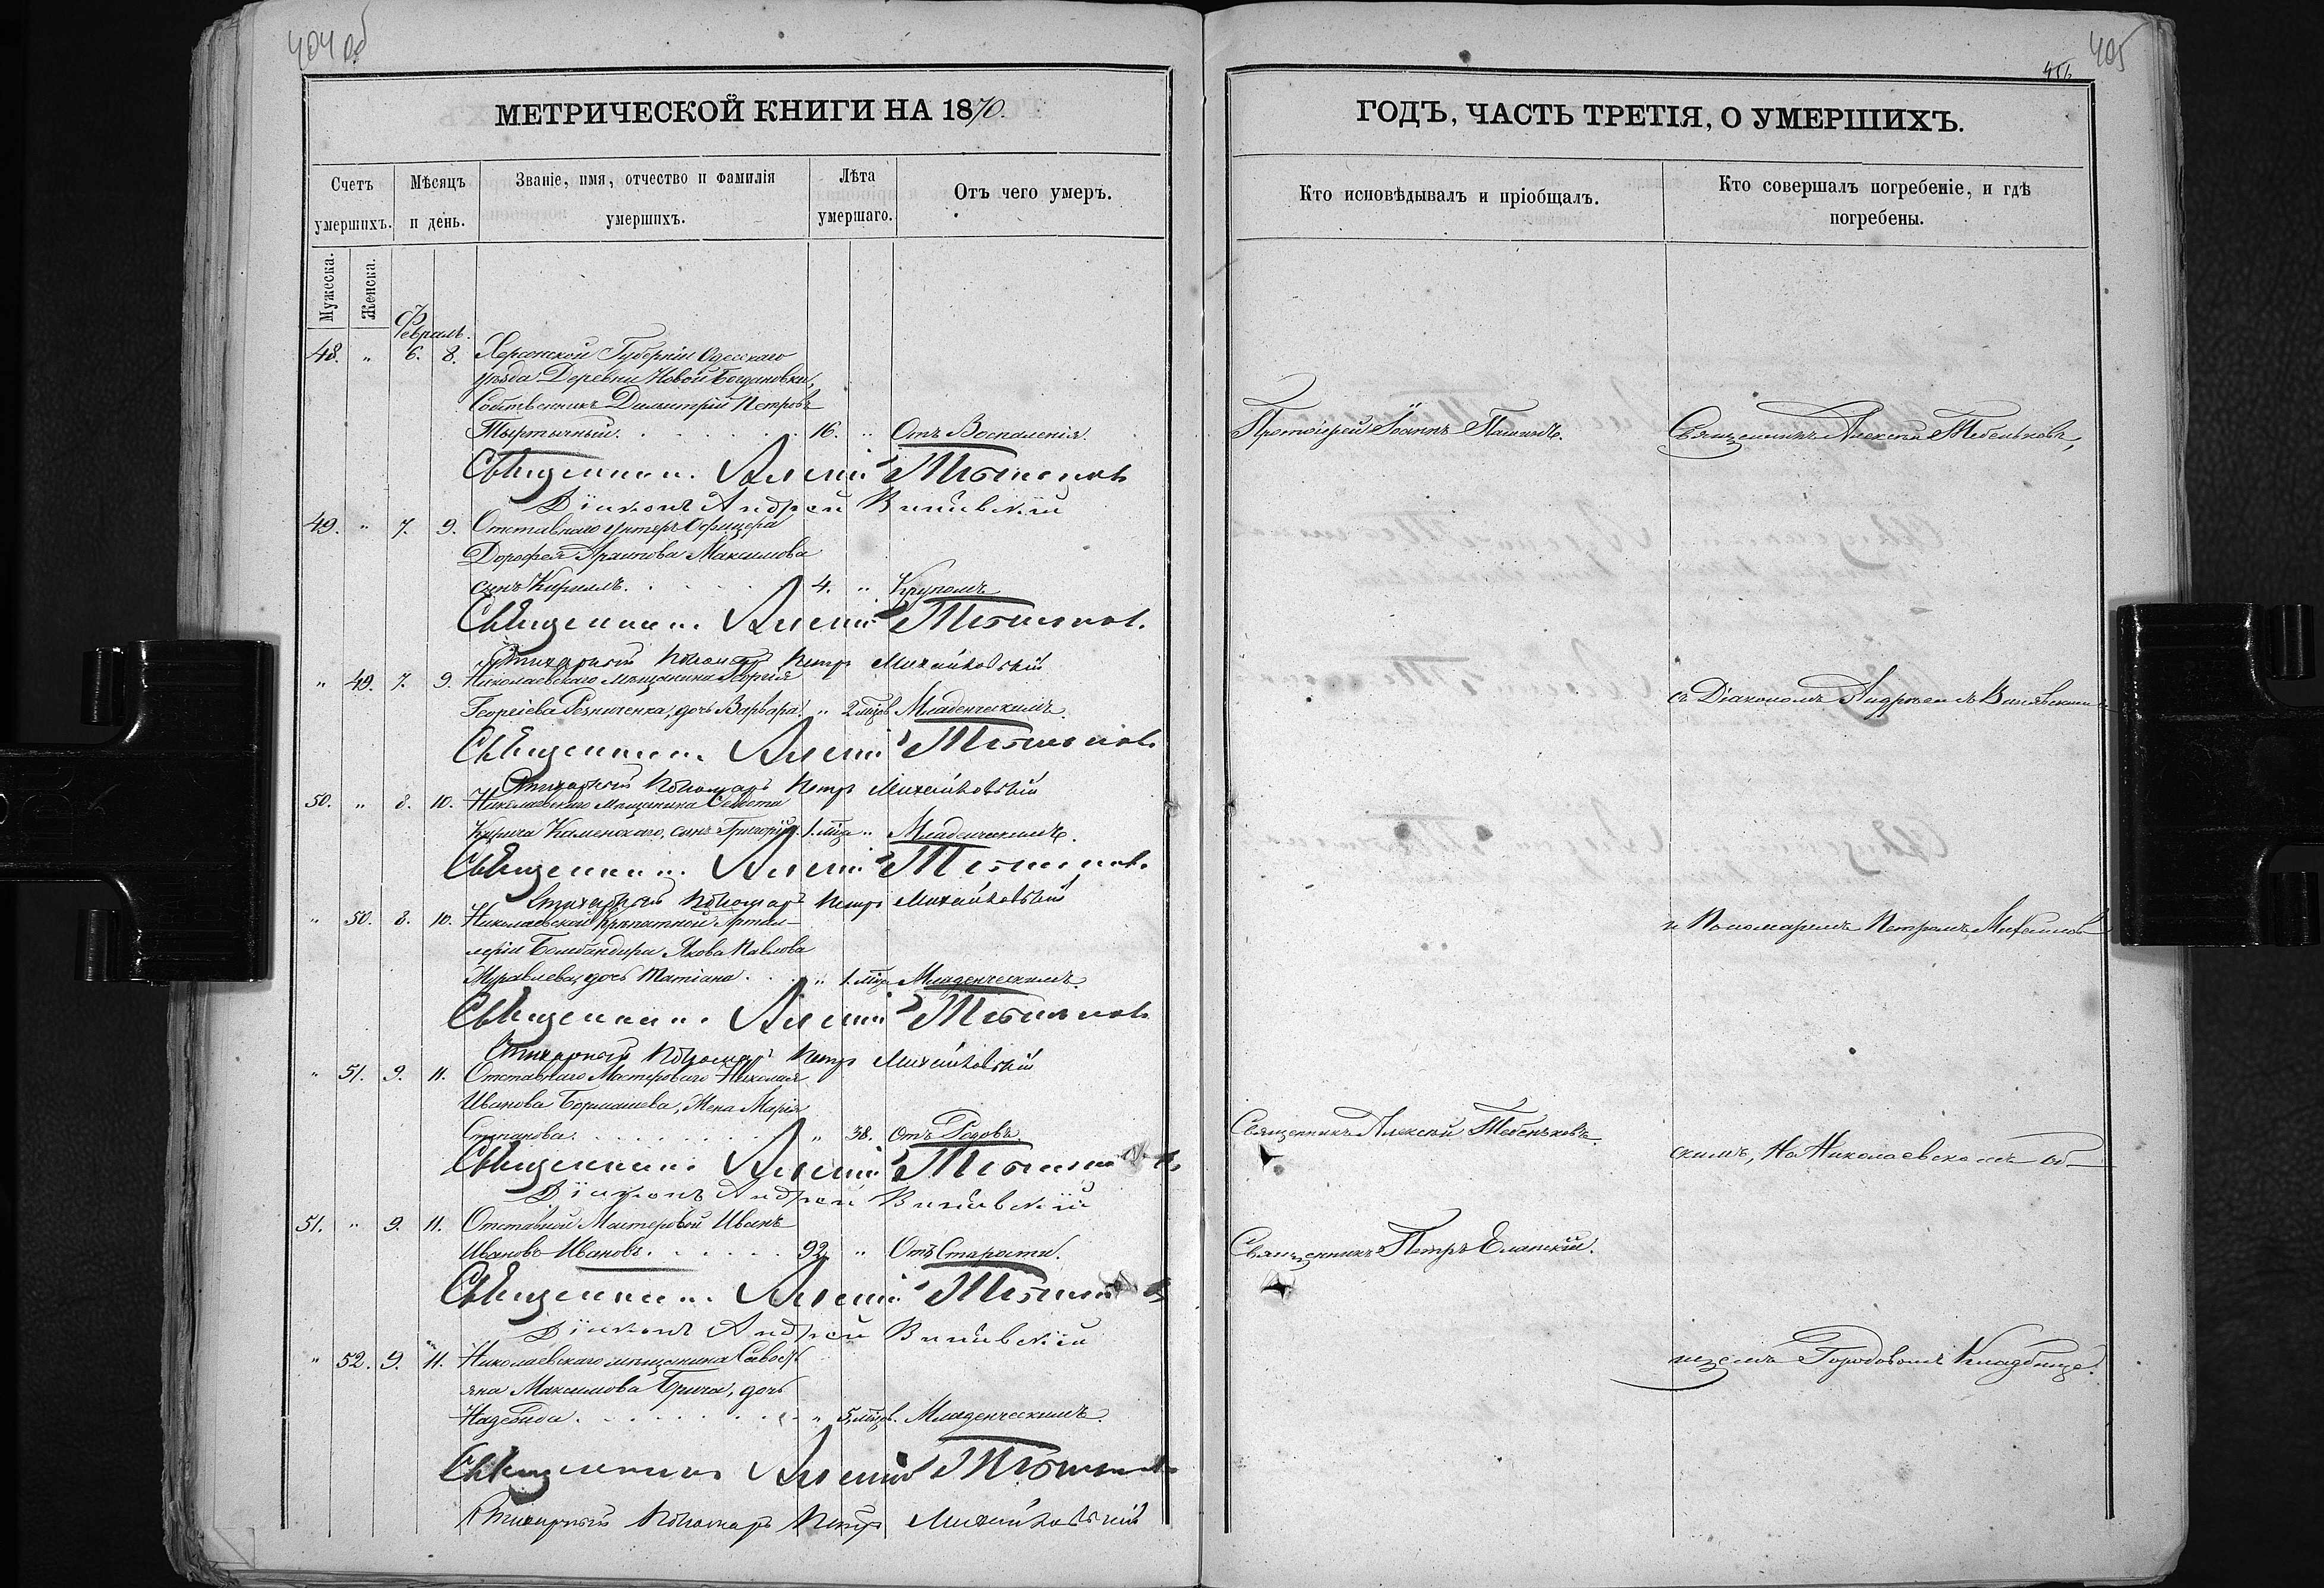 404 об
МЕТРИЧЕСКОЙ КНИГИ НА 1870.
Счетъ умершихъ.
Мѣсяцъ и день.
Званіе, имя, отчество и фамилія умершихъ.
Лѣта умершаго.
Отъ чего умеръ.
Мужеска.
Женска.
Февраль.
48. " 6. 8. Херсонской Губерніи Одесскаго
уѣзда Деревни Новой Богдановки,
Собственникъ Димитрій Петровъ
16. " Отъ Воспаленія.
Священникъ Алексій Тебеньковъ
Діаконъ Андрей
49. " 7. 9. Отставнаго унтеръ Офицера
Дорофея Максимова
сынъ Кириллъ. 4. " Крупомъ
Священникъ Алексій Тебеньковъ
Стихарный Пономарь Петръ Михайловскій
" 49. 7. 9. Николаевскаго мѣщанина Георгія
Георгіева Резниченка, дочь Варвара. " 2 мѣсяц. Младенческимъ.
Священникъ Алексій Тебеньковъ
Стихарный Пономарь Петръ Михайловскій
50. " 8. 10. Николаевскаго Мѣщанина
Каменскаго, сынъ Григорій. 1. мѣся " Младенческимъ.
Священникъ Алексій Тебеньковъ
Стихарный Пономарь Петръ Михайловскій
" 50. 8. 10. Николаевской Крѣпостной Артил-
леріи Бомбандира Якова Павлова
Муравлева, дочь Татіана. " 1. мѣся Младенческимъ.
Священникъ Алексій Тебеньковъ
Стихарный Пономарь Петръ Михайловскій
" 51. 9. 11. Отставнаго Мастероваго Николая
Иванова жена Марія
Степанова. " 38. Отъ Родовъ.
Священникъ Алексій Тебеньковъ
Діаконъ Андрей
51. " 9. 11. Отставной Мастеровой Иванъ
Ивановъ Ивановъ. 92. " Отъ Старости.
Священникъ Алексій Тебеньковъ
Діаконъ Андрей
" 52. 9. 11. Николаевскаго мѣщанина Савость
яна Максимова дочь
Надежда. " 5. мѣсяц. Младенческимъ.
Священникъ Алексій Тебеньковъ
Стихарный Пономарь Петръ Михайловскій
405
ГОДЪ, ЧАСТЬ ТРЕТІЯ, О УМЕРШИХЪ.
Кто исповѣдывалъ и пріобщалъ.
Кто совершалъ погребеніе, и гдѣ погребены.
Протоіерей Іоаннъ
Священникъ Алексѣй Тебеньковъ,
съ Діакономъ Андреемъ
и Пономаремъ Петромъ Михайлов
Священникъ Алексѣй Тебеньковъ.
скимъ, На Николаевскомъ об-
Священникъ Петръ Еланскій.
щемъ Городовомъ Кладбище.